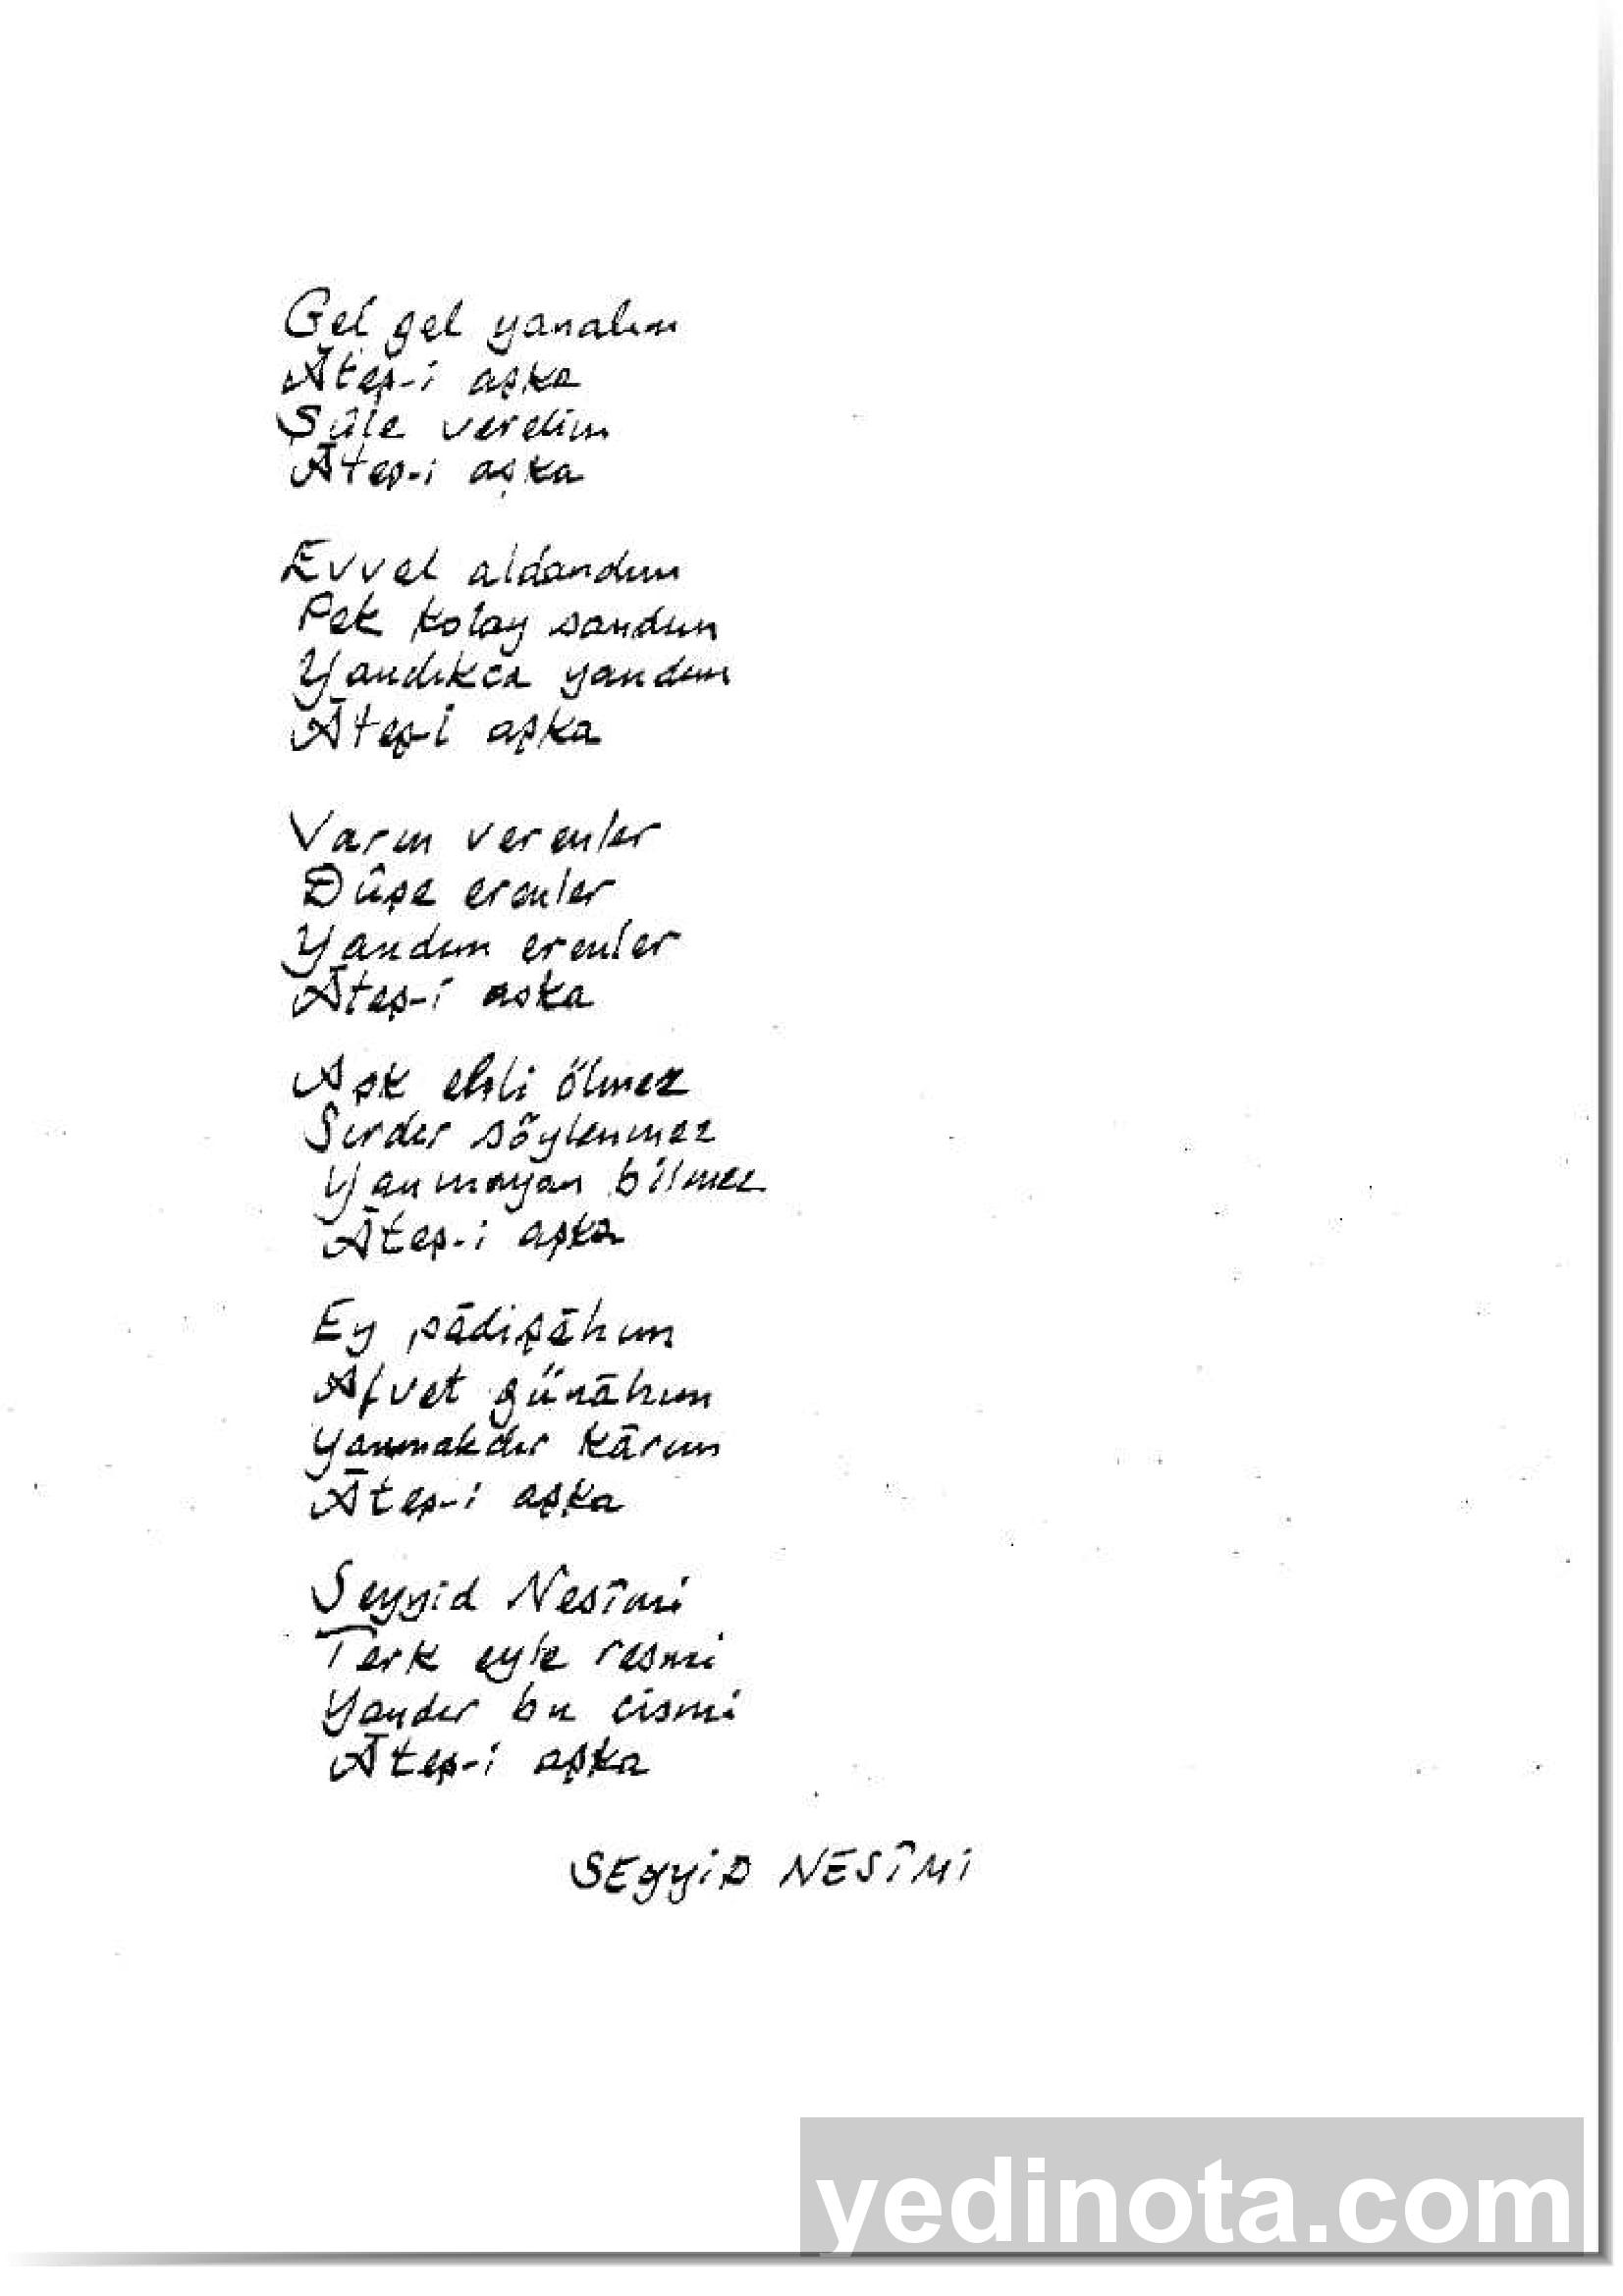 Gel gel yanalım
Āteş-i aşka
Şûle verelim
Āteş-i aşka
Evvel aldandım
Pek kolay sandım
Yandıkca yandım
Āteş-i aşka
Varın verenler
Dûşe erenler
Yandım erenler
Āteş-i aşka
Aşk ehli ölmez
Sırdır söylenmez
Yanmayan bilmez
Āteş-i aşka
Ey pādişāhım
Afvet günāhım
Yanmakdır kārım
Āteş-i aşka
Seyyid Nesîmi
Terk eyle resmi
Yandır bu cismi
Āteş-i aşka
SEYYİD NESÎMİ
yedinota.com